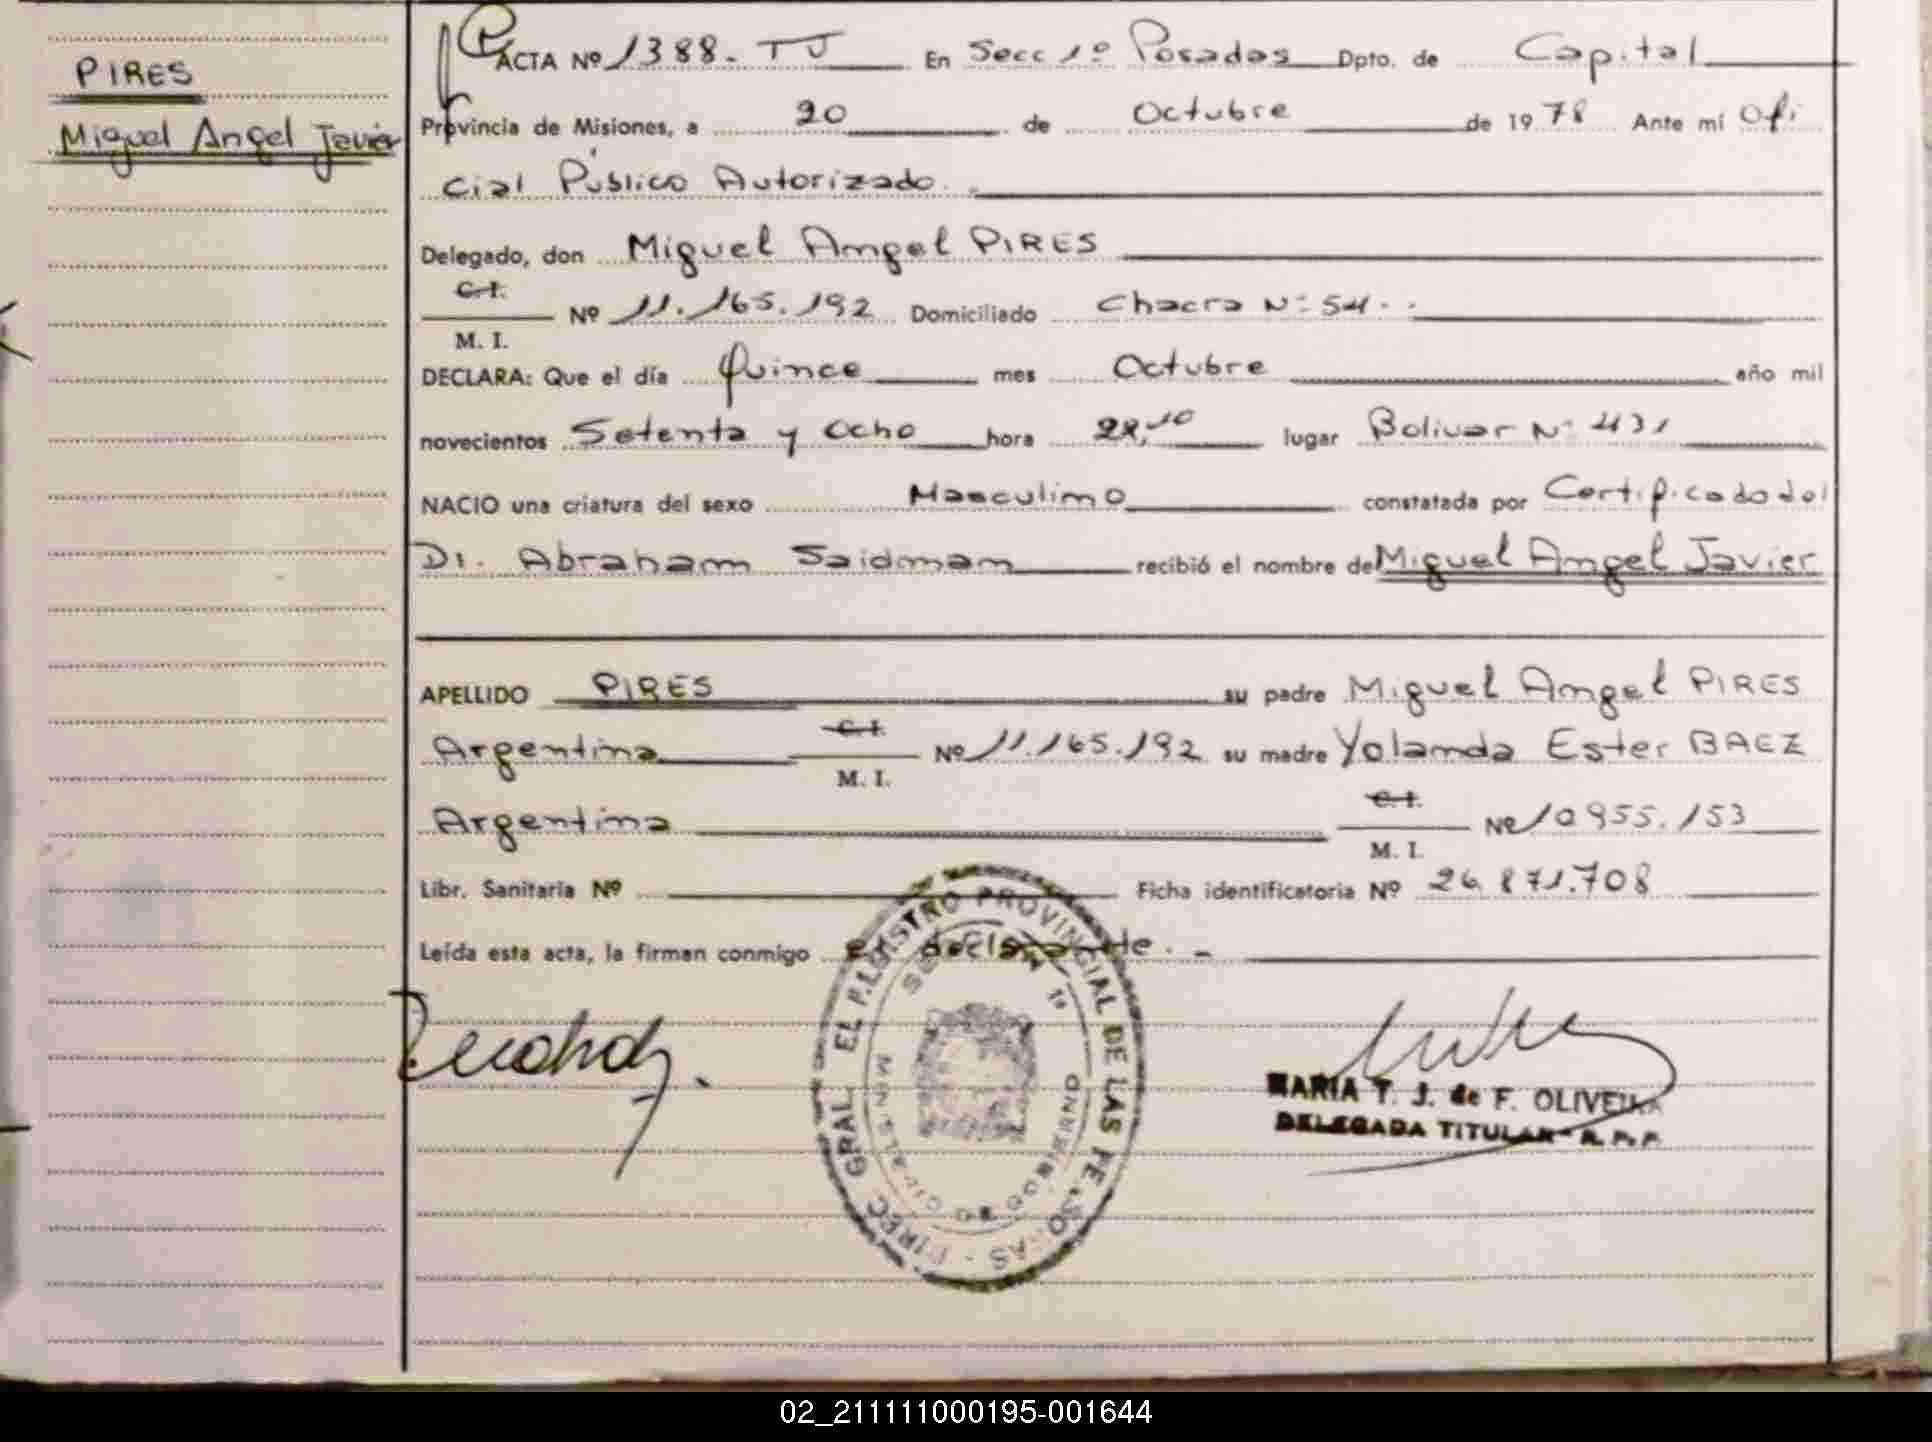 PIRES
Miguel Angel Javier
ACTA Nº 1388. TJ En Secc 1º Posadas Dpto. de Capital
Provincia de Misiones, a 20 de Octubre de 1978 Ante mí Ofi
cial Público Autorizado.
Delegado, don Miguel Angel PIRES
C.I.
M. I. Nº 11.165.192 Domiciliado Chacra Nº 54.
DECLARA: Que el día Quince mes Octubre año mil
novecientos Setenta y Ocho hora lugar Bolivar Nº 431
NACIO una criatura del sexo Masculino constatada por Certificado del
Dr. Abraham Saidman recibió el nombre de Miguel Angel Javier
APELLIDO PIRES su padre Miguel Angel PIRES
Argentina C.I.
M. I. Nº 11.165.192 su madre Yolanda Ester BAEZ
Argentina C.I.
M. I. Nº 10955.153
Libr. Sanitaria Nº Ficha identificatoria Nº 26.871.708
Leída esta acta, la firman conmigo el declarante. -
DIREC. GRAL. REGISTRO PROVINCIAL DE LAS PERSONAS
SECCION 1º
MARIA T. J. de F. OLIVEIRA
DELEGADA TITULAR R. P. P.
02_211111000195-001644